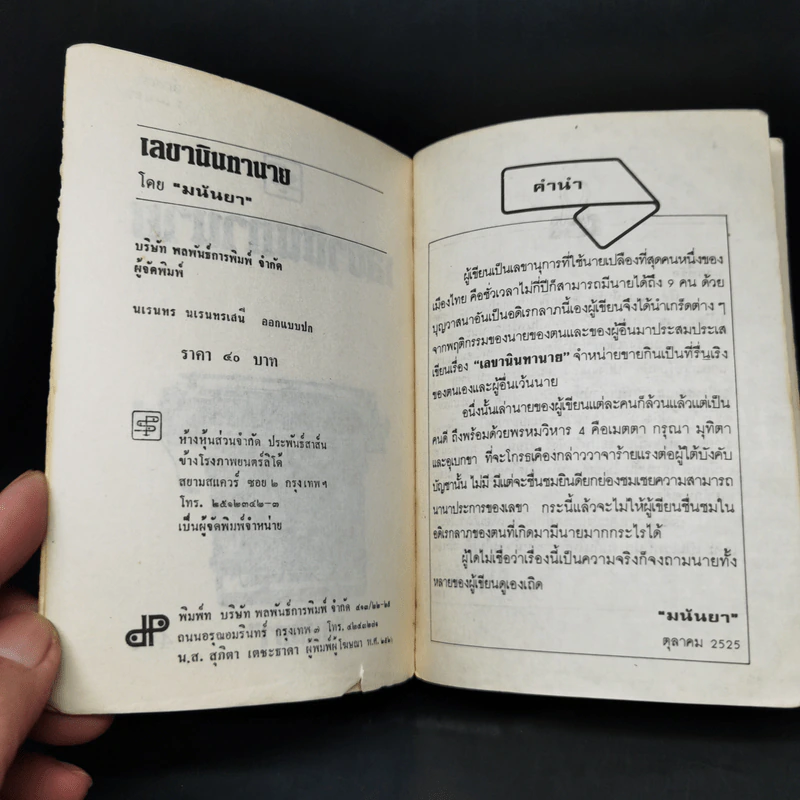 เลขานินทานาย
โดย "มนันยา"
บริษัท พลพันธ์การพิมพ์ จำกัด
ผู้จัดพิมพ์
นเรนทร นเรนทรเสนี ออกแบบปก
ราคา ๔๐ บาท
ห้างหุ้นส่วนจำกัด ประพันธ์สาส์น
ข้างโรงภาพยนตร์ลิโด้
สยามสแควร์ ซอย ๒ กรุงเทพฯ
โทร. ๒๕๑๒๓๔๒-๓
เป็นผู้จัดพิมพ์จำหน่าย
dP
พิมพ์ที่ บริษัท พลพันธ์การพิมพ์ จำกัด
ถนนอรุณอมรินทร์ กรุงเทพ ๗ โทร.
น.ส. สุภิตา เตชะธาดา ผู้พิมพ์ผู้โฆษณา
คำนำ
ผู้เขียนเป็นเลขานุการที่ใช้นายเปลืองที่สุดคนหนึ่งของ
เมืองไทย คือชั่วเวลาไม่กี่ปีก็สามารถมีนายได้ถึง 9 คน ด้วย
บุญวาสนาอันเป็นอดิเรกลาภนี้เองผู้เขียนจึงได้นำเกร็ดต่าง ๆ
จากพฤติกรรมของนายของตนและของผู้อื่นมาประสมประเส
เขียนเรื่อง "เลขานินทานาย" จำหน่ายขายกินเป็นที่รื่นเริง
ของตนเองและผู้อื่นเว้นนาย
อนึ่งนั้นเล่านายของผู้เขียนแต่ละคนก็ล้วนแล้วแต่เป็น
คนดี ถึงพร้อมด้วยพรหมวิหาร 4 คือเมตตา กรุณา มุทิตา
และอุเบกขา ที่จะโกรธเคืองกล่าววาจาร้ายแรงต่อผู้ใต้บังคับ
บัญชานั้น ไม่มี มีแต่จะชื่นชมยินดียกย่องชมเชยความสามารถ
นานาประการของเลขา กระนี้แล้วจะไม่ให้ผู้เขียนชื่นชมใน
อดิเรกลาภของตนที่เกิดมามีนายมากกระไรได้
ผู้ใดไม่เชื่อว่าเรื่องนี้เป็นความจริงก็จงถามนายทั้ง
หลายของผู้เขียนดูเองเถิด
"มนันยา"
ตุลาคม 2525